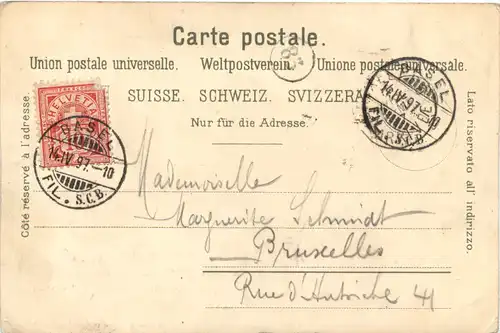 Carte postale.
Union postale universelle. Weltpostverein. Unione postale universale.
SUISSE. SCHWEIZ. SVIZZERA
Nur für die Adresse.
Côté réservé à l'adresse.
Lato riservato all' indirizzo.
HELVETIA
BASEL
14.IV.97.–10
FIL. S.C.B.
BASEL
14.IV.97.–10
FIL. S.C.B.
Mademoiselle
Marguerite Schmidt
Bruxelles
Rue d'Autriche 41